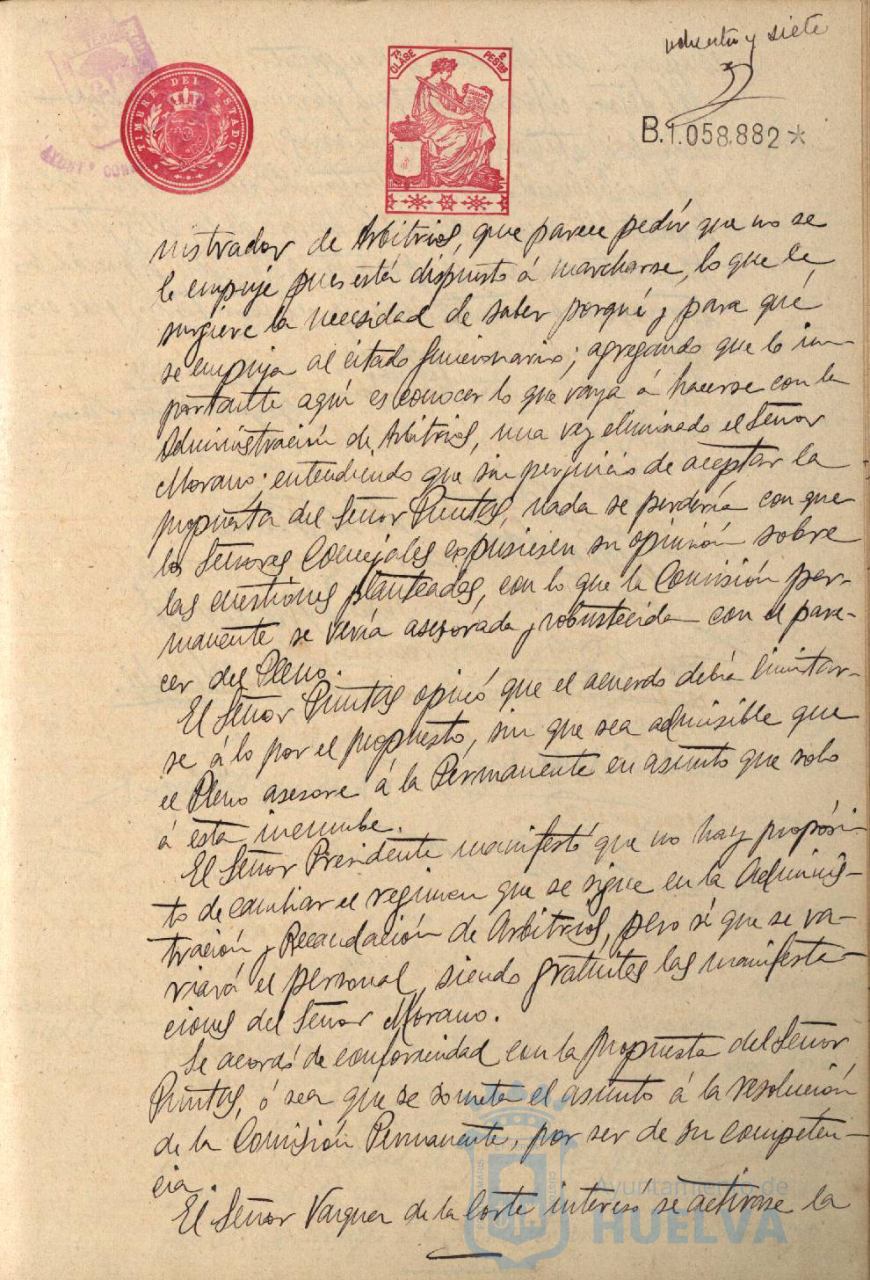 ochenta y siete
TIMBRE DEL ESTADO
7ª CLASE
2 PESETAS
B.1.058.882*
nistrador de Arbitrios, que parece pedir que no se
le empuje pues está dispuesto á marcharse, lo que le
sugiere la necesidad de saber porqué y para qué
se empuja al citado funcionario; agregando que lo im-
portante aquí es conocer lo que vaya á hacerse con la
Administración de Arbitrios, una vez eliminado el Señor
Morano; entendiendo que sin perjuicio de aceptar la
propuesta del Señor Puntas, nada se perdería con que
los Señores Concejales expusiesen su opinión sobre
las cuestiones planteadas, con lo que la Comisión per-
manente se vería asesorada y robustecida con el pare-
cer del Pleno.
El Señor Puntas opinó que el acuerdo debía limitar-
se á lo por el propuesto, sin que sea admisible que
el Pleno asesore á la Permanente en asunto que solo
á esta incumbe.
El Señor Presidente manifestó que no hay propósi-
to de cambiar el regimen que se sigue en la Adminis-
tración y Recaudación de Arbitrios, pero sí que se va-
riará el personal, siendo gratuitas las manifesta-
ciones del Señor Morano.
Se acordó de conformidad con la propuesta del Señor
Puntas, ó sea que se someta el asunto á la resolución
de la Comisión Permanente, por ser de su competen-
cia.
El Señor Vazquez de la Corte interesó se activase la
Ayuntamiento de
HUELVA